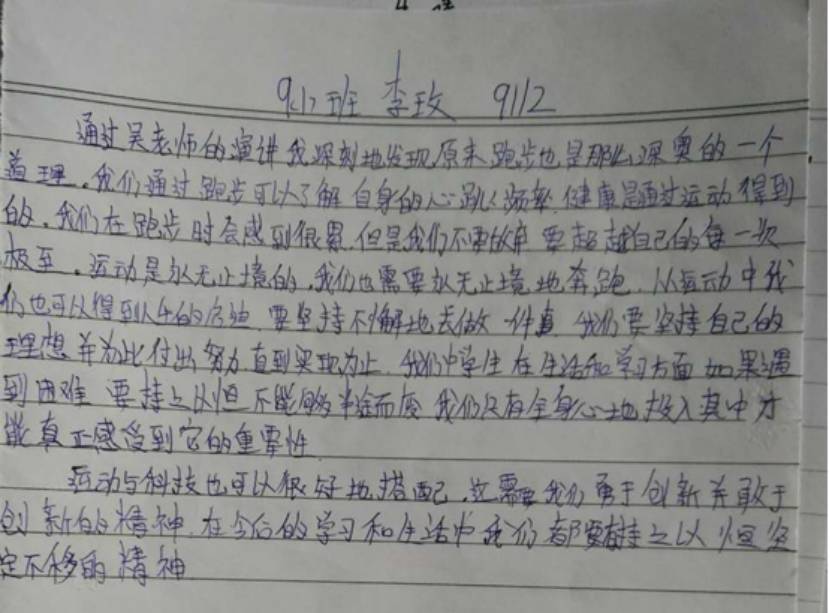 9(1)班 李玫 9112
通过吴老师的演讲我深刻地发现原来跑步也是那么深奥的一个
道理，我们通过跑步可以了解自身的心跳频率，健康是通过运动得到
的，我们在跑步时会感到很累，但是我们不要放弃，要超越自己的每一次
极至，运动是永无止境的，我们也需要永无止境地奔跑，从运动中我
们也可以得到人生的启迪，要坚持不懈地去做一件事，我们要坚持自己的
理想并为此付出努力直到实现为止，我们中学生在生活和学习方面如果遇
到困难，要持之以恒不能够半途而废，我们只有全身心地投入其中才
能真正感受到它的重要性
运动与科技也可以很好地搭配，这需要我们勇于创新并敢于
创新的精神，在今后的学习和生活中我们都要有持之以恒坚
定不移的精神